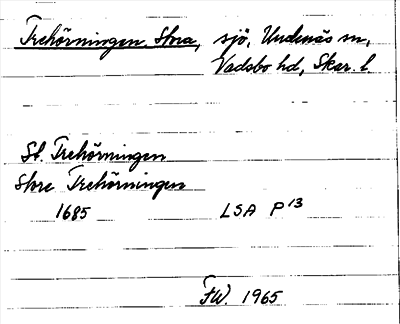 Trehörningen, Stora, sjö, Undenäs sn,
Vadsbo hd, Skar. l.
St. Trehörningen
Store Trehörningen
1685 LSA P 13
FW. 1965